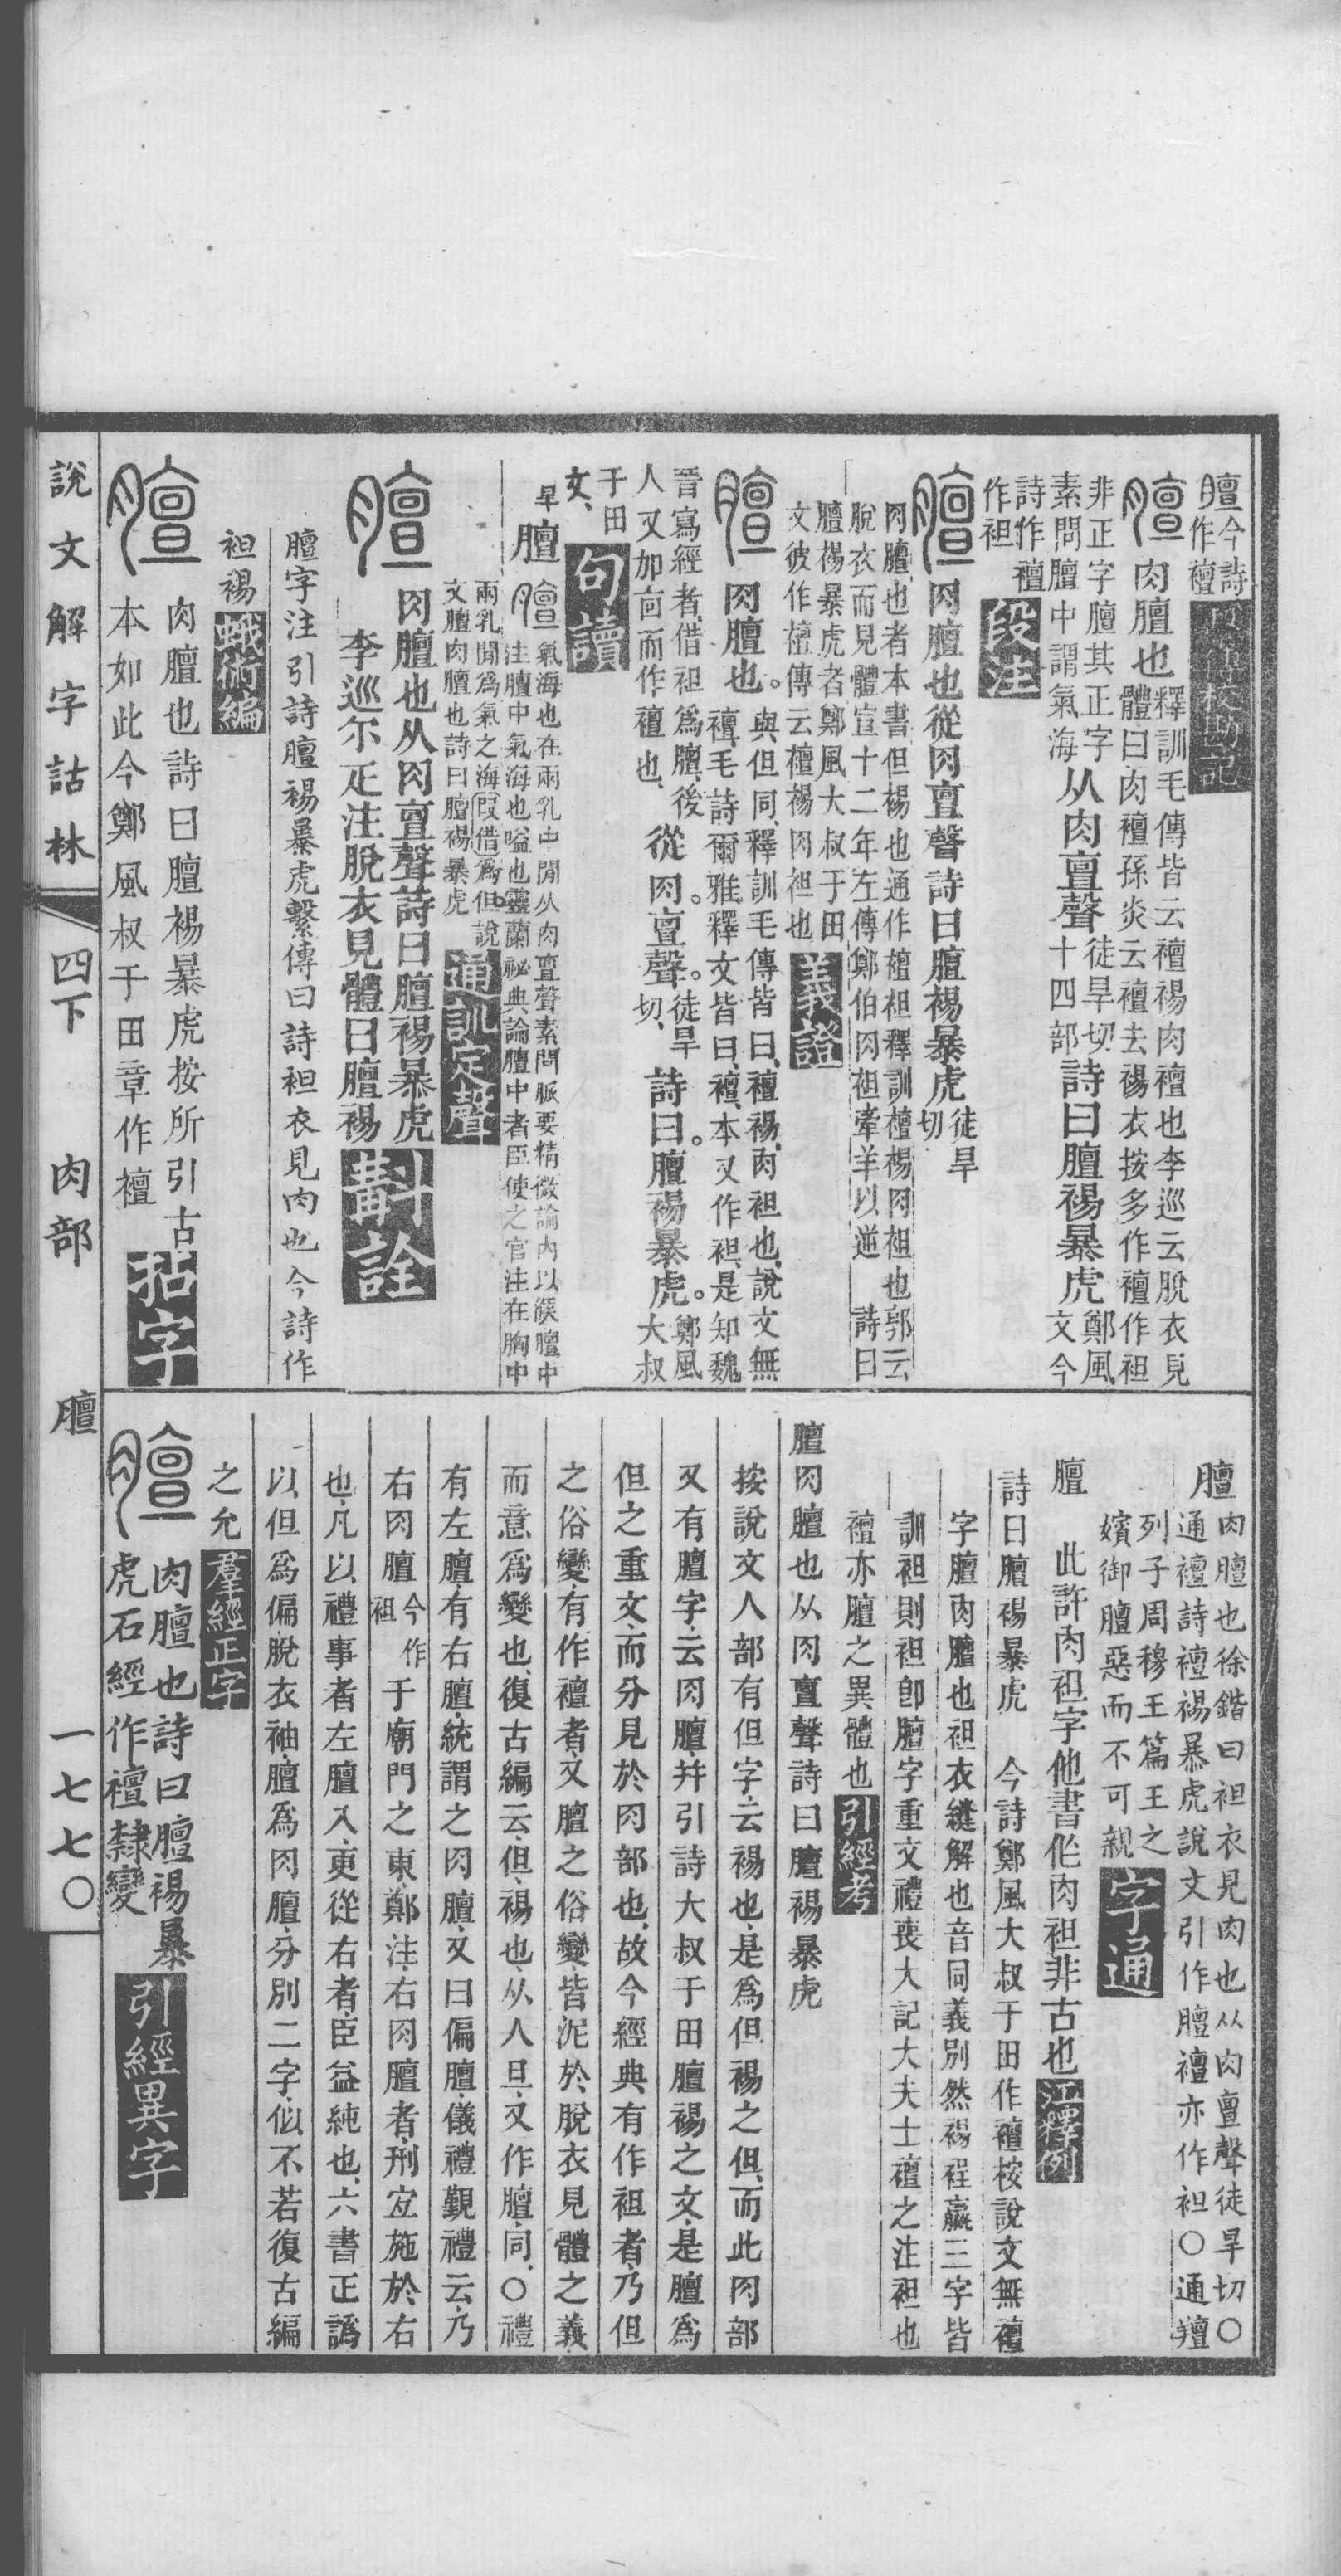 膻今詩
作襢
𣪠傳校勘記
膻
肉膻也
釋訓毛傳皆云襢裼肉襢也李巡云脫衣見
體曰肉襢孫炎云襢去裼衣按多作襢作袒
非正字膻其正字
素問膻中謂氣海
从肉亶聲
徒旱切
十四部
詩曰膻裼暴虎
鄭風
文今
詩作襢
作袒
段注
膻
肉膻也從肉亶聲詩曰膻裼暴虎
徒旱
切
肉膻也者本書但裼也通作襢袒釋訓襢裼肉袒也郭云
脫衣而見體宣十二年左傳鄭伯肉袒牽羊以逆
詩曰
膻裼暴虎者鄭風大叔于田
文彼作襢傳云襢裼肉袒也
義證
膻
肉膻也。
與但同、釋訓毛傳皆曰、襢裼、肉袒也、說文無
襢、毛詩爾雅、釋文皆曰、襢、本又作袒、是知魏
晉寫經者、借袒爲膻、後
人又加亶而作襢也、
從肉亶聲。
徒旱
切、
詩曰。膻裼暴虎。
鄭風
大叔
于田
文、
句讀
旱
膻
膻
氣海也在兩乳中閒从肉亶聲素問脈要精微論內以候膻中
注膻中氣海也嗌也靈蘭祕典論膻中者臣使之官注在胸中
兩乳閒爲氣之海叚借爲但說
文膻肉膻也詩曰膻裼暴虎
通訓定聲
膻
肉膻也从肉亶聲詩曰膻裼暴虎
李巡尒疋注脫衣見體曰膻裼
斠詮
膻字注引詩膻裼暴虎繫傳曰詩袒衣見肉也今詩作
袒裼
蛾術編
膻
肉膻也詩曰膻裼暴虎按所引古
本如此今鄭風叔于田章作襢
拈字
膻
肉膻也徐鍇曰袒衣見肉也从肉亶聲徒旱切〇
通襢詩襢裼暴虎說文引作膻襢亦作袒〇通羶
列子周穆王篇王之
嬪御膻惡而不可親
字通
膻
此許肉袒字他書作肉袒非古也
江釋例
詩曰膻裼暴虎
今詩鄭風大叔于田作襢按說文無襢
字膻肉膻也袒衣縫解也音同義別然裼裎臝三字皆
訓袒則袒卽膻字重文禮喪大記大夫士襢之注袒也
襢亦膻之異體也
引經考
膻肉膻也从肉亶聲詩曰膻裼暴虎
按說文人部有但字、云裼也、是爲但裼之但、而此肉部
又有膻字、云肉膻、幷引詩大叔于田膻裼之文、是膻爲
但之重文、而分見於肉部也、故今經典有作袒者、乃但
之俗變、有作襢者、又膻之俗變、皆泥於脫衣見體之義、
而意爲變也、復古編云、但、裼也、从人旦、又作膻、同、〇禮
有左膻、有右膻、統謂之肉膻、又曰偏膻、儀禮覲禮云、乃
右肉膻
今作
袒
于廟門之東、鄭注、右肉膻者、刑宜施於右
也、凡以禮事者左膻、入、更從右者、臣益純也、六書正譌
以、但爲偏脫衣袖、膻爲肉膻、分別二字、似不若復古編
之允
羣經正字
膻
肉膻也詩曰膻裼暴
虎石經作襢隸變
引經異字
說文解字詁林
四下
肉部
膻
一七七〇